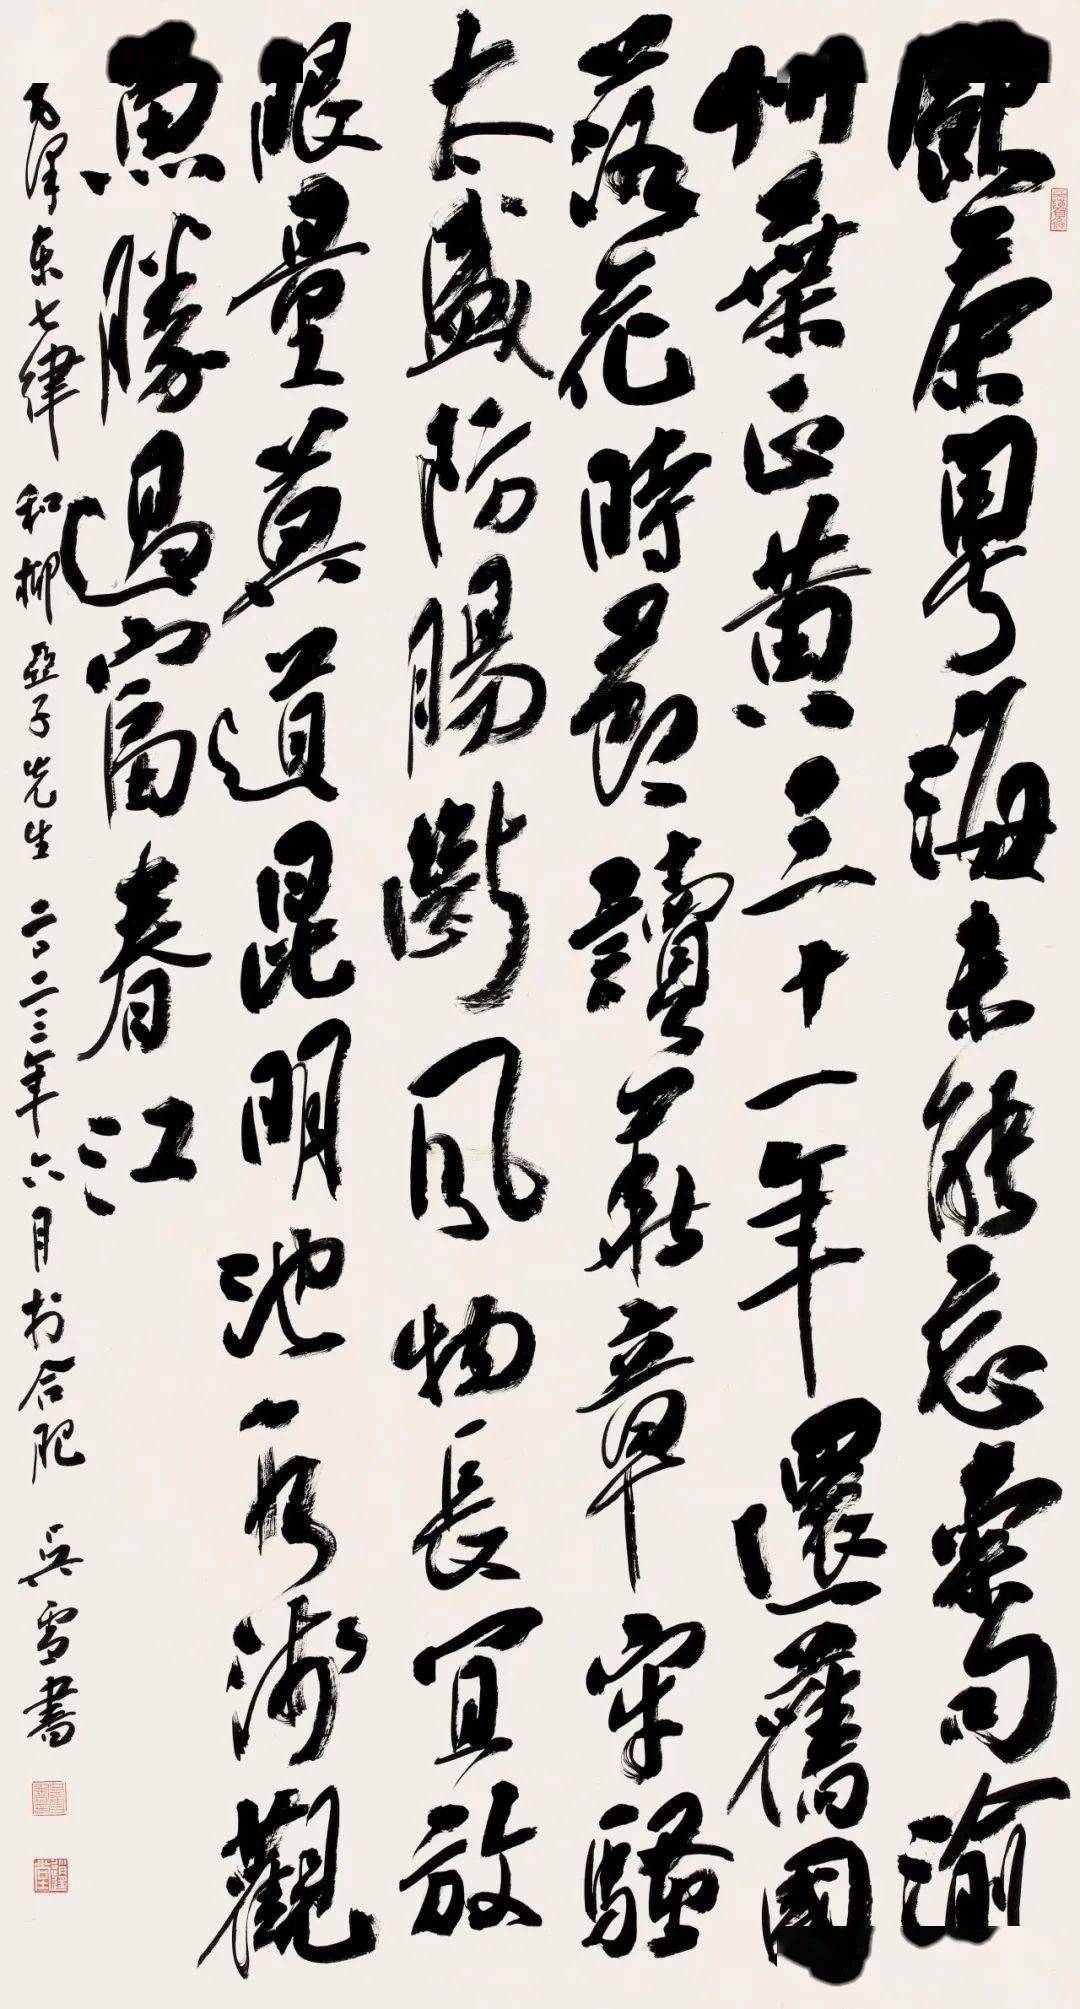 飲茶粤海未能忘索句渝
州葉正黄三十一年還舊國
落花時節讀華章牢騷
太盛防腸斷風物長宜放
眼量莫道昆明池水淺觀
魚勝過富春江
毛澤東七律 和柳亞子先生 二〇二三年六月於合肥 吴雪書